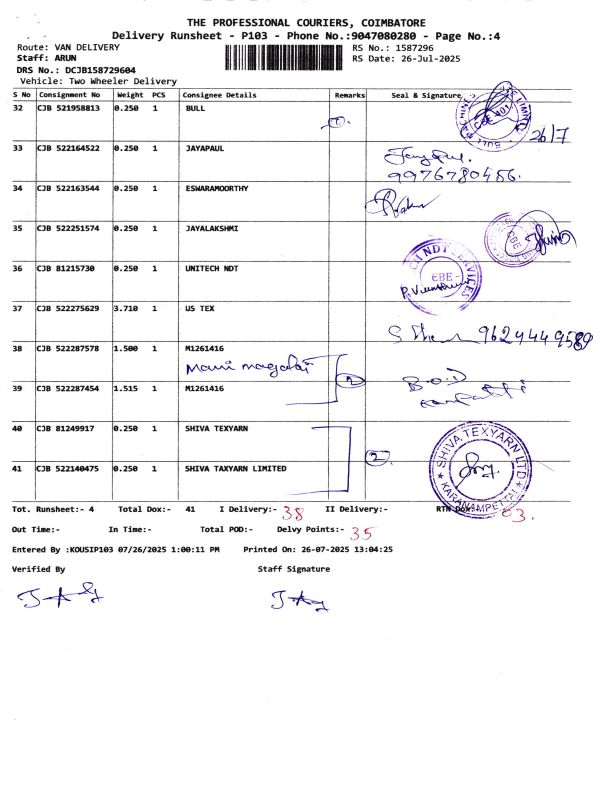 THE PROFESSIONAL COURIERS, COIMBATORE
Delivery Runsheet - P103 - Phone No.:9047080280 - Page No.:4
Route: VAN DELIVERY RS No.: 1587296
Staff: ARUN RS Date: 26-Jul-2025
DRS No.: DCJB158729604
Vehicle: Two Wheeler Delivery
S No Consignment No Weight PCS Consignee Details Remarks Seal & Signature
32 CJB 521958813 0.250 1 BULL
1 26/7
33 CJB 522164522 0.250 1 JAYAPAUL
9976780456.
34 CJB 522163544 0.250 1 ESWARAMOORTHY
35 CJB 522251574 0.250 1 JAYALAKSHMI
CBE
36 CJB 81215730 0.250 1 UNITECH NDT
NDT SERVICES CBE -
37 CJB 522275629 3.710 1 US TEX
38 CJB 522287578 1.500 1 M1261416
2
39 CJB 522287454 1.515 1 M1261416
40 CJB 81249917 0.250 1 SHIVA TEXYARN
2 SHIVA TEXYARN LTD KARANAMPETTAI
41 CJB 522140475 0.250 1 SHIVA TAXYARN LIMITED
Tot. Runsheet:- 4 Total Dox:- 41 I Delivery:- 38 II Delivery:- RTN Dox:- 03.
Out Time:- In Time:- Total POD:- Delvy Points:- 35
Entered By :KOUSIP103 07/26/2025 1:00:11 PM Printed On: 26-07-2025 13:04:25
Verified By Staff Signature